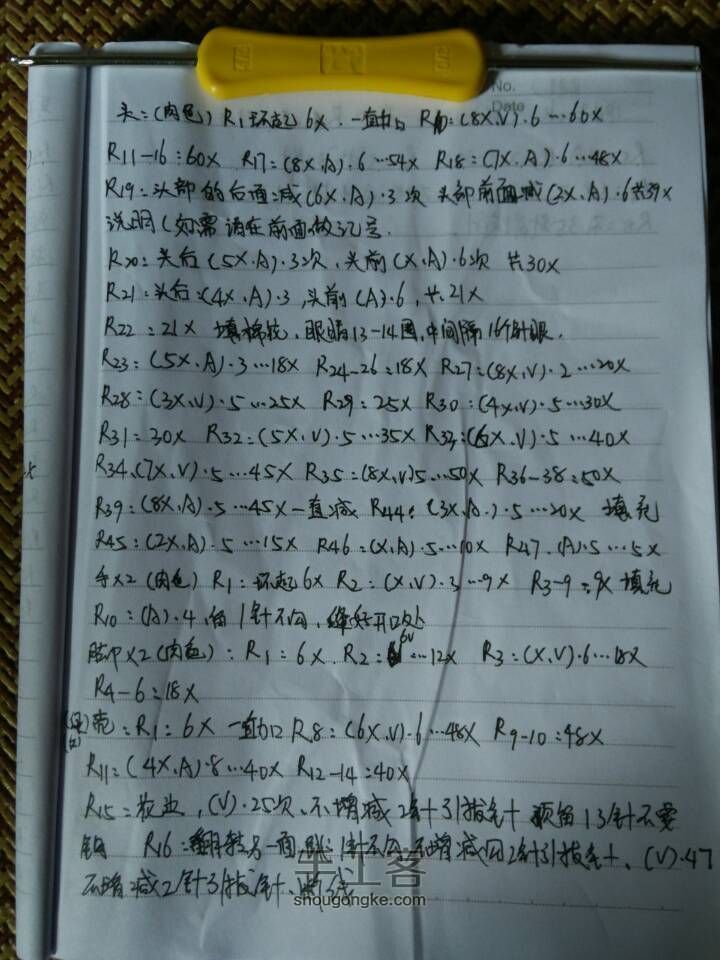 No.
Date
头:(肉色) R1环起6X.一直加 R10:(8X,V).6…60X
R11-16:60X R17:(8X,A).6…54X R18:(7X.A).6…48X
R19:头部的后面减(6X,A).3次 头部前面减(2X,A).6共39X
说明(如需请在前面做记号.
R20:头后(5X.A).3次,头前(X,A).6次 共30X
R21:头后:(4X,A).3,头前(A).6,共21X
R22:21X 填棉花,眼睛13-14圈,中间隔16个针眼.
R23:(5X,A).3…18X R24-26:18X R27:(8X,V).2…20X
R28:(3X,V).5…25X R29:25X R30:(4X,V).5…30X
R31:30X R32:(5X,V).5…35X R33:(6X,V).5…40X
R34.(7X,V).5…45X R35:(8X,V)5…50X R36-38:50X
R39:(8X,A).5…45X一直减 R44:(3X,A.).5…20X 填充
R45:(2X,A).5…15X R46:(X,A).5…10X R47.(A).5…5X
手X2(肉色) R1:环起6X R2:(X,V).3…9X R3-9:9X填充
R10:(A).4,留1针不勾,缝好开口处
脚X2(肉色):R1:6X.R2:6V…12X R3:(X,V).6…18X
R4-6:18X
壳:R1:6X 一直加 R8:(6X,V).6…48X R9-10:48X
R11:(4X,A).8…40X R12-14:40X
R15:花边,(V).25次,不增减2针引拔针 预留13针不要
钩 R16:翻转另一面 1针不勾,不增减勾2针引拔针、(V).47
不增减2针引拔针、断线
手工客
shougongke.com